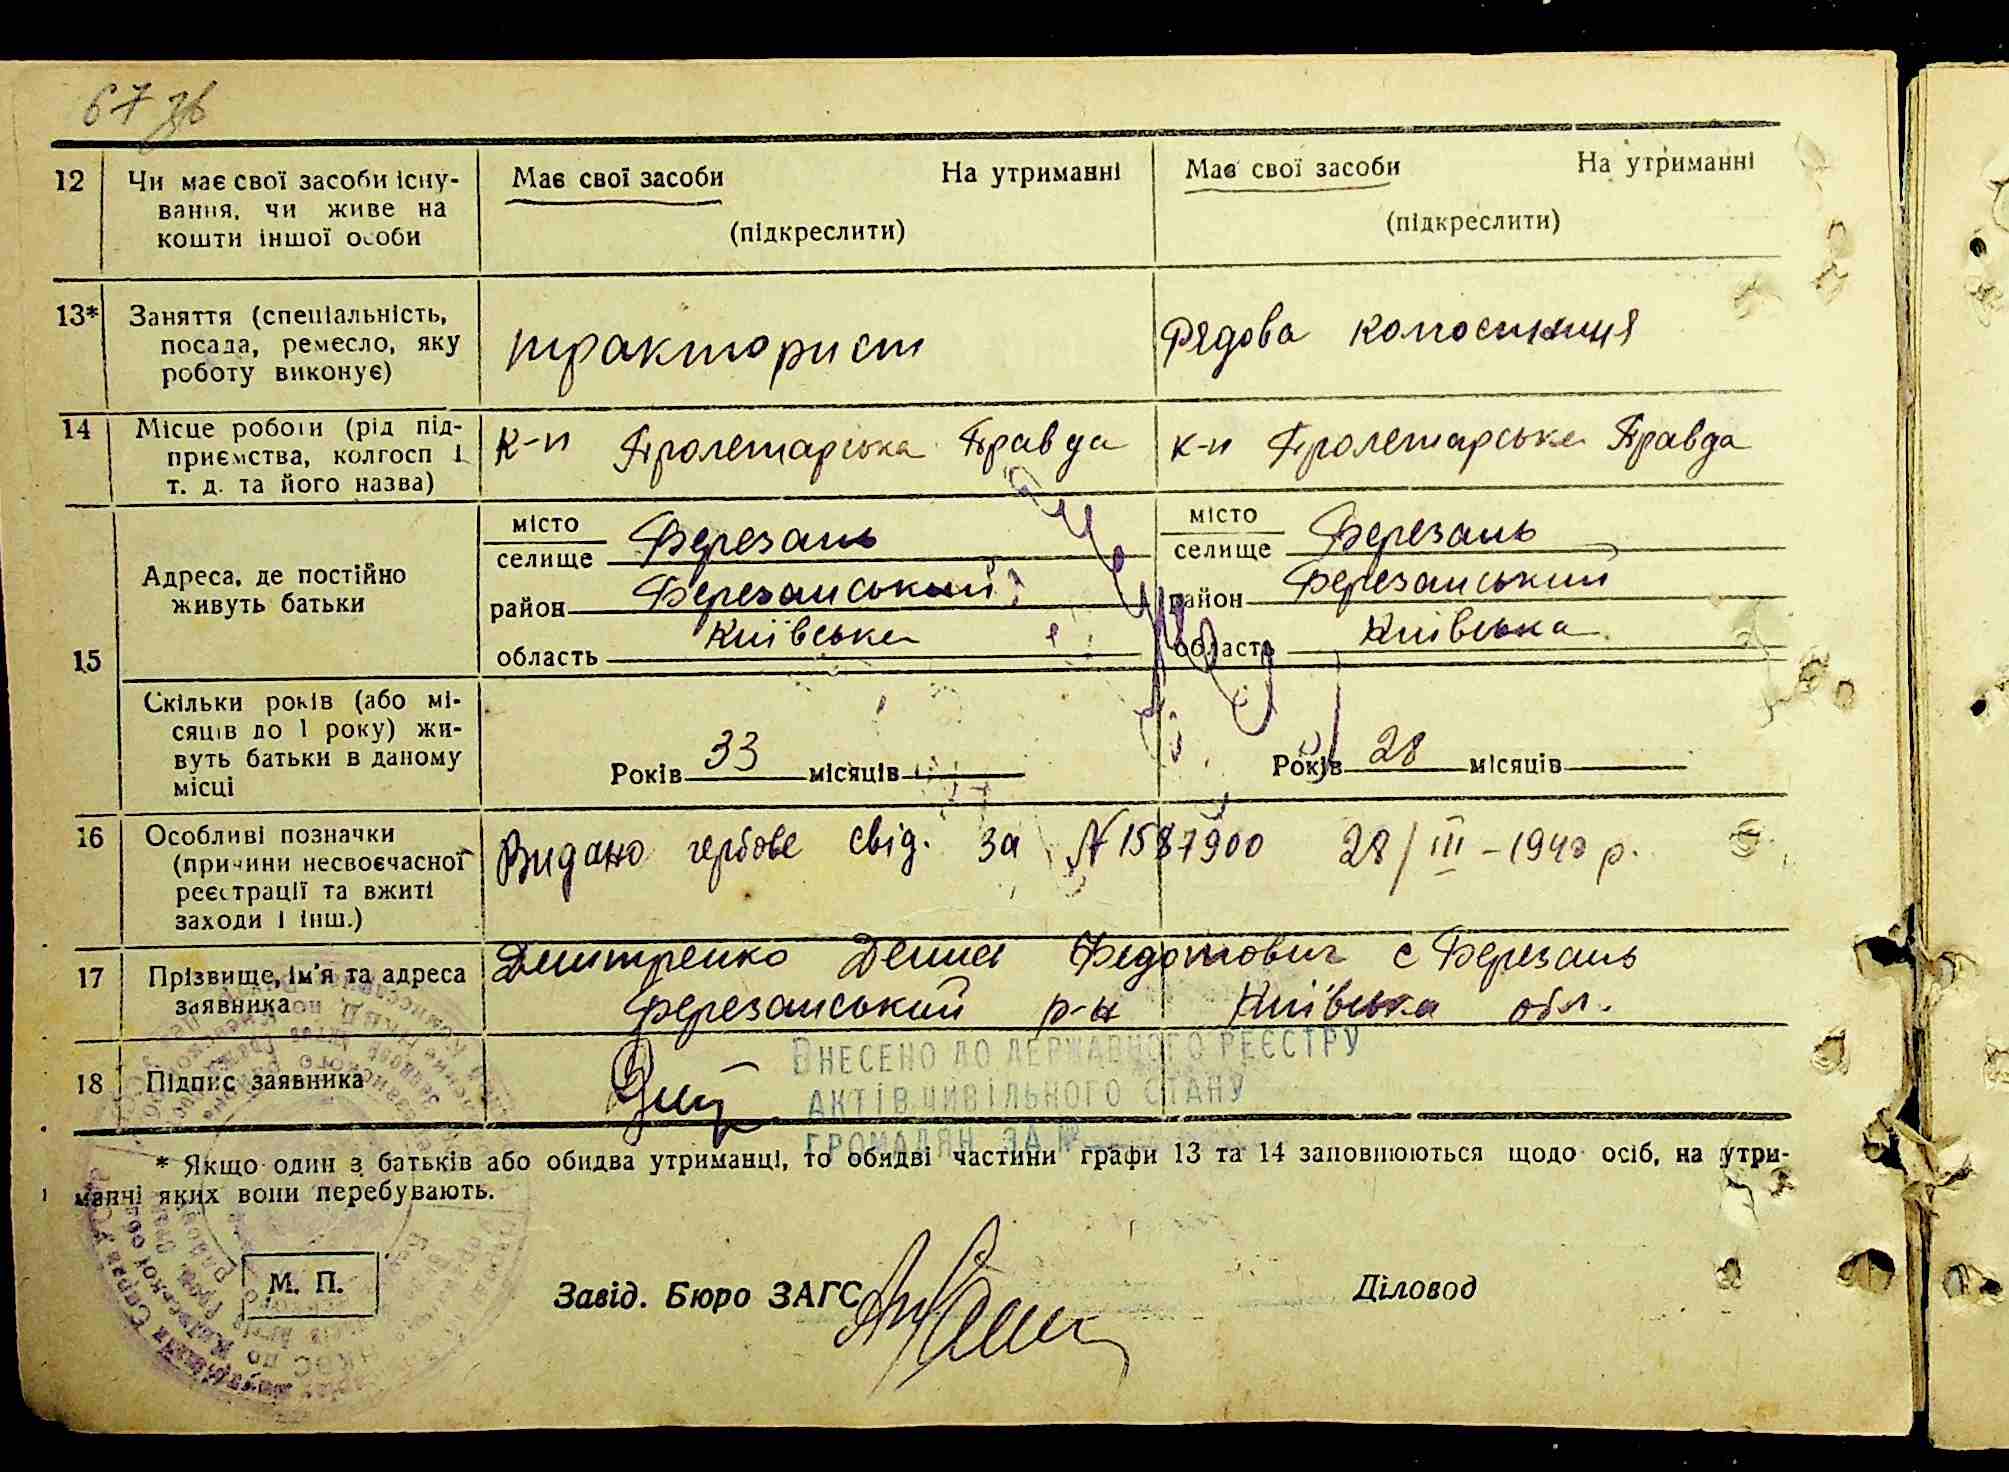 67 зв
12 Чи має свої засоби існу- Має свої засоби На утриманні Має свої засоби На утриманні
вання, чи живе на
кошти іншої особи (підкреслити) (підкреслити)
13* Заняття (спеціальність, тракторист Рядова колгоспниця
посада, ремесло, яку
роботу виконує)
14 Місце роботи (рід під- к-п Пролетарська Правда к-п Пролетарська Правда
приємства, колгосп і
т. д. та його назва)
15 Адреса, де постійно живуть батьки
місто Березань місто Березань
селище селище
район Березанський район Березанський
область Київська область Київська
Скільки років (або мі-
сяців до 1 року) жи-
вуть батьки в даному
місці
Років 33 місяців Років 28 місяців
16 Особливі позначки
(причини несвоєчасної
реєстрації та вжиті
заходи і інш.)
Видано гербове свід. за № 1587900 28/III-1940 р.
17 Прізвище, ім'я та адреса Дмитренко Денис Федотович с Березань
заявника Березанський р-н Київська обл.
18 Підпис заявника
ВНЕСЕНО ДО ДЕРЖАВНОГО РЕЄСТРУ
АКТІВ ЦИВІЛЬНОГО СТАНУ
ГРОМАДЯН ЗА №
* Якщо один з батьків або обидва утриманці, то обидві частини графи 13 та 14 заповнюються щодо осіб, на утри-
манні яких вони перебувають.
М. П.
Завід. Бюро ЗАГС Діловод